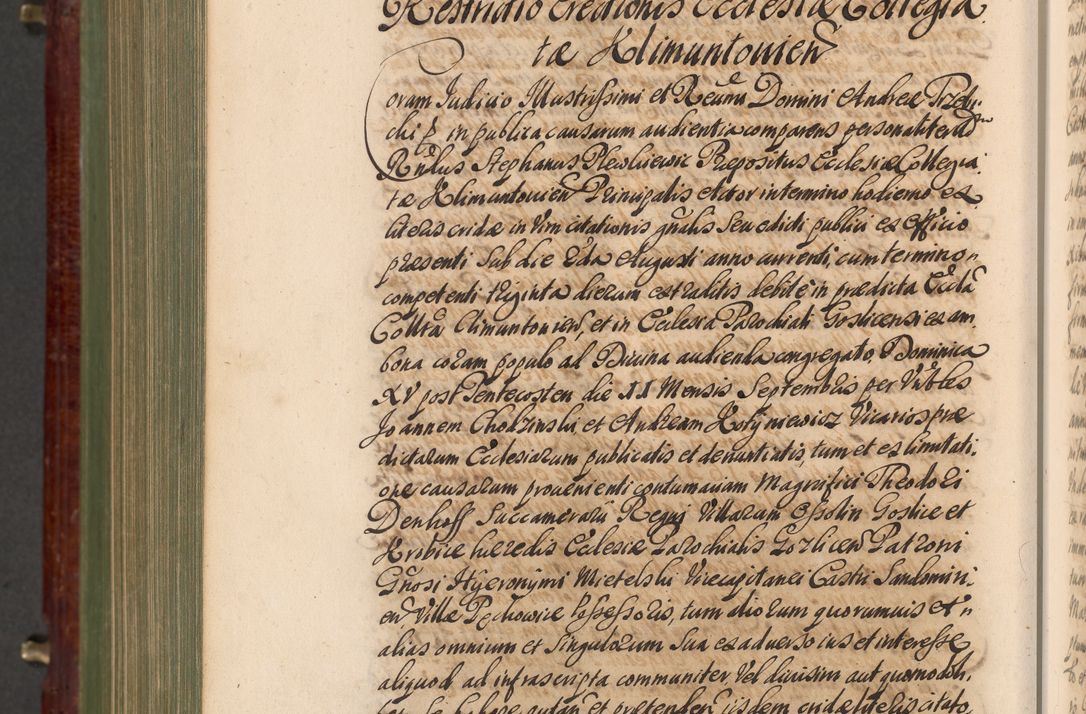 Restrictio Erectionis Ecclesiæ Collegia
tæ Klimuntovien
Coram Judicio Illustrissimi et Reundi Domini Andreæ Trzebi
cki p in publica causarum audientia comparens personaliter Ad
Rndus Stephanus Præpositus Ecclesiæ Collegia
tæ Klimuntovien Principalis Actor in termino hodierno ex
literis cridæ in vim citationis gnalis seu edicti publici ex officio
præsenti sub die 2da Augusti anno currenti, cum termino
competenti triginta dierum extraditis debite in prædicta Eccla
Collta Climuntovien, et in Ecclesia Parochiali Goslicensi ex am
bona coram populo ad Divina audienda congregato, Dominica
XV post Pentecosten die 11 Mensis Septembris per Vnbles
Joannem et Andream Vicarios præ
dictarum Ecclesiarum publicatis et denuntiatis, tum et ex limitati
one causarum provenienti contumaciam Magnifici Theodori
Denhoff Succamerarii Regni Villarum Ossolin Goslice et
hæredis Ecclesiæ Parochialis Gozlicen Patroni
Gnosi Hyeronymi Mietelski Vicecapitanei Castri Sandomiri
en Villæ Pęchowice possessoris, tum aliorum quorumvis et
alias omnium et singulorum sua ex adverso ius et interesse
aliquod ad infrascripta communiter vel divisim aut quomodoli
habere putan et prætenden iisdem cridæ literis citato